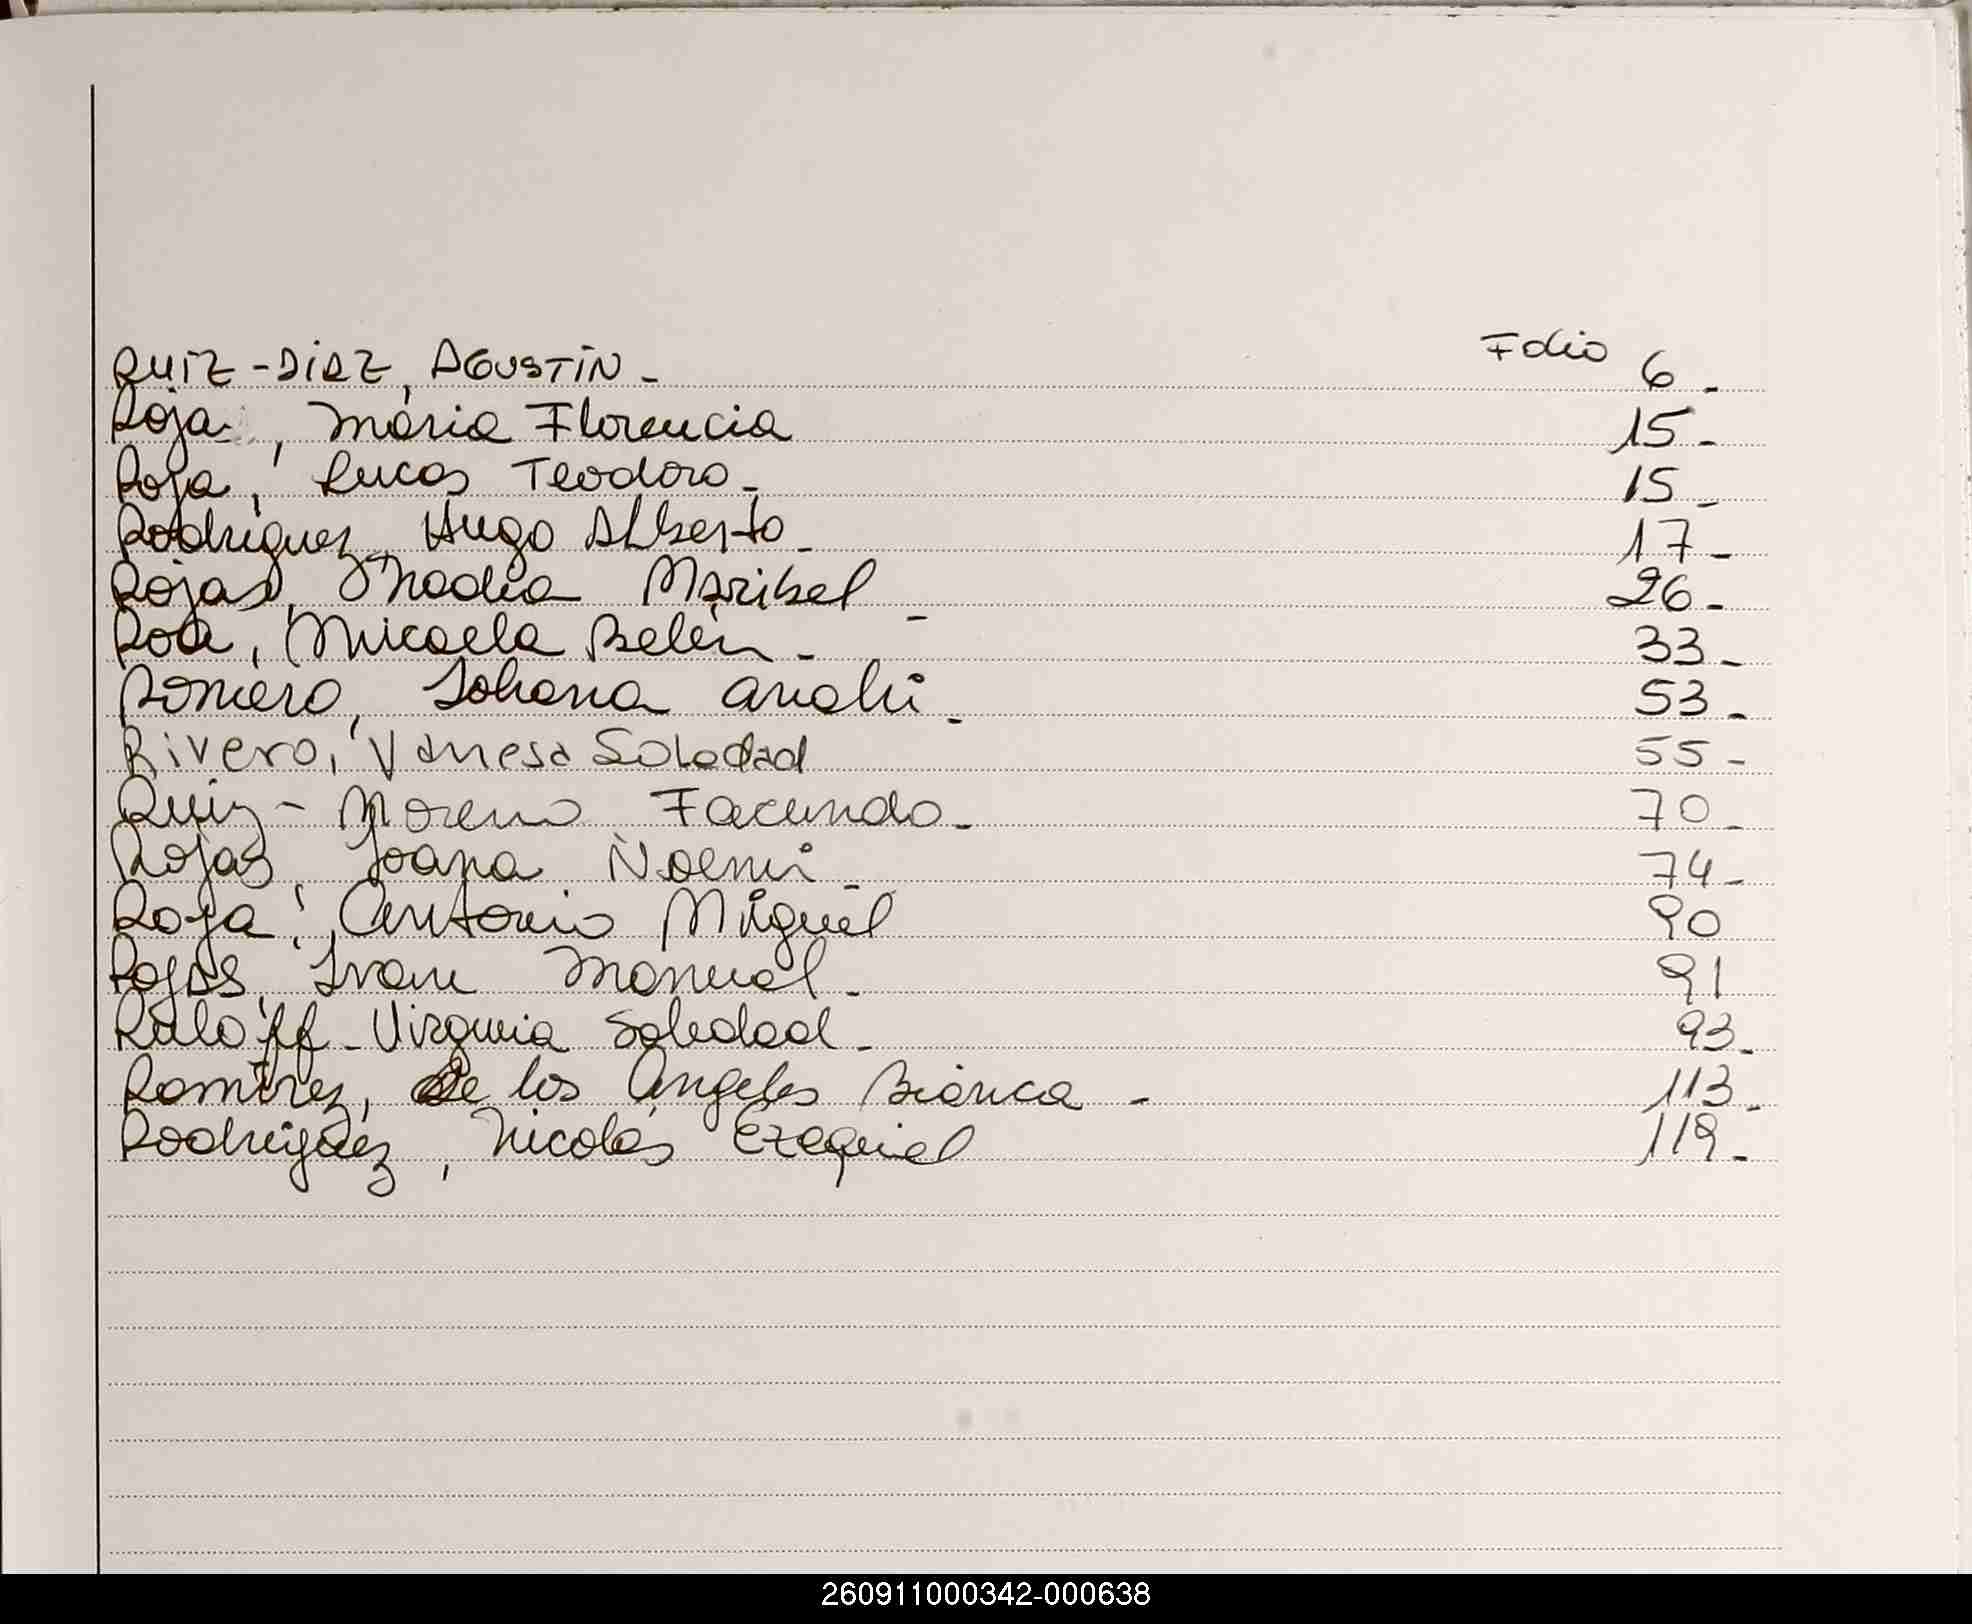 Folio
RUIZ-DIAZ, AGUSTIN - 6 -
Roja, Maria Florencia 15 -
Roja, Lucas Teodoro - 15 -
Rodriguez, Hugo Alberto - 17 -
Rojas, Nadia Maribel - 26 -
Roa, Micaela Belén - 33 -
Romero, Johana Anahi - 53 -
Rivero, Vanesa Soledad 55 -
Ruiz - Moreno Facundo - 70 -
Rojas, Joana Noemi - 74 -
Roja, Antonio Miguel 90
Rojas, Ivan Manuel - 91
Raloff - Virginia Soledad - 93 -
Ramirez, de los Angeles Bianca - 113 -
Rodriguez, Nicolás Ezequiel 119 -
260911000342-000638